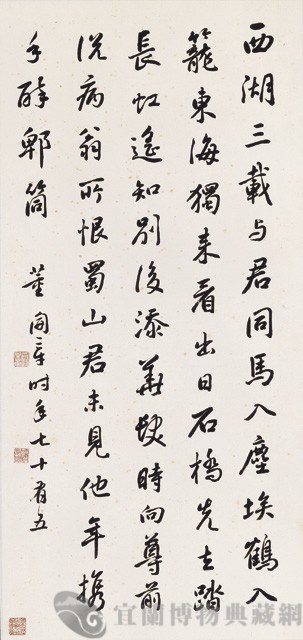 西湖三載与君同馬入塵埃鶴入
籠東海獨來看出日石橋先去踏
長虹遙知別後添華髮時向尊前
説病翁所恨蜀山君未見他年携
手醉郫筒
董開章时年七十有五
宜蘭博物典藏網